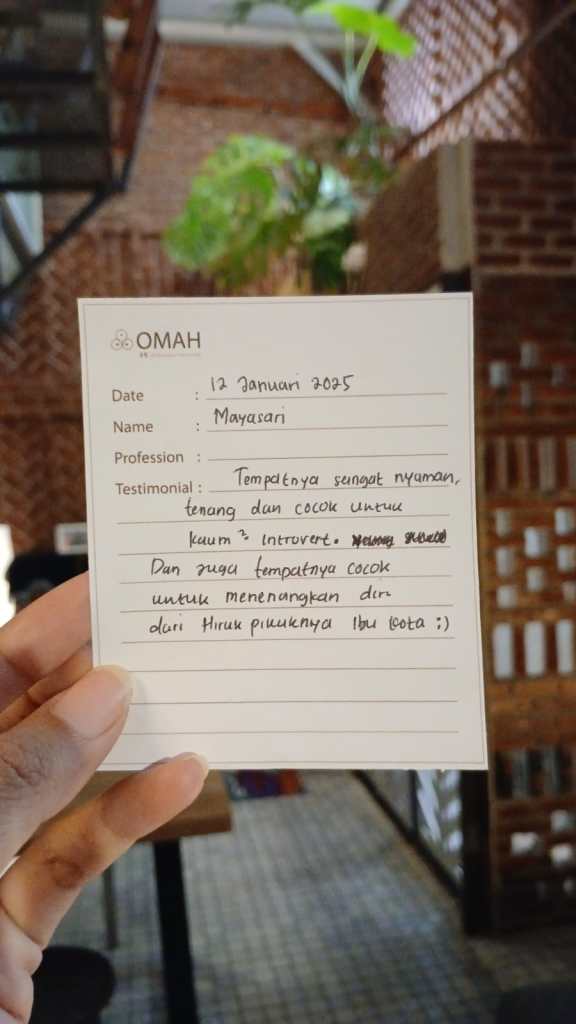 OMAH
Date : 12 Januari 2025
Name : Mayasari
Profession :
Testimonial : Tempatnya sangat nyaman,
tenang dan cocok untuk
kaum² introvert.
Dan juga tempatnya cocok
untuk menenangkan diri
dari Hiruk pikuknya Ibu kota :)